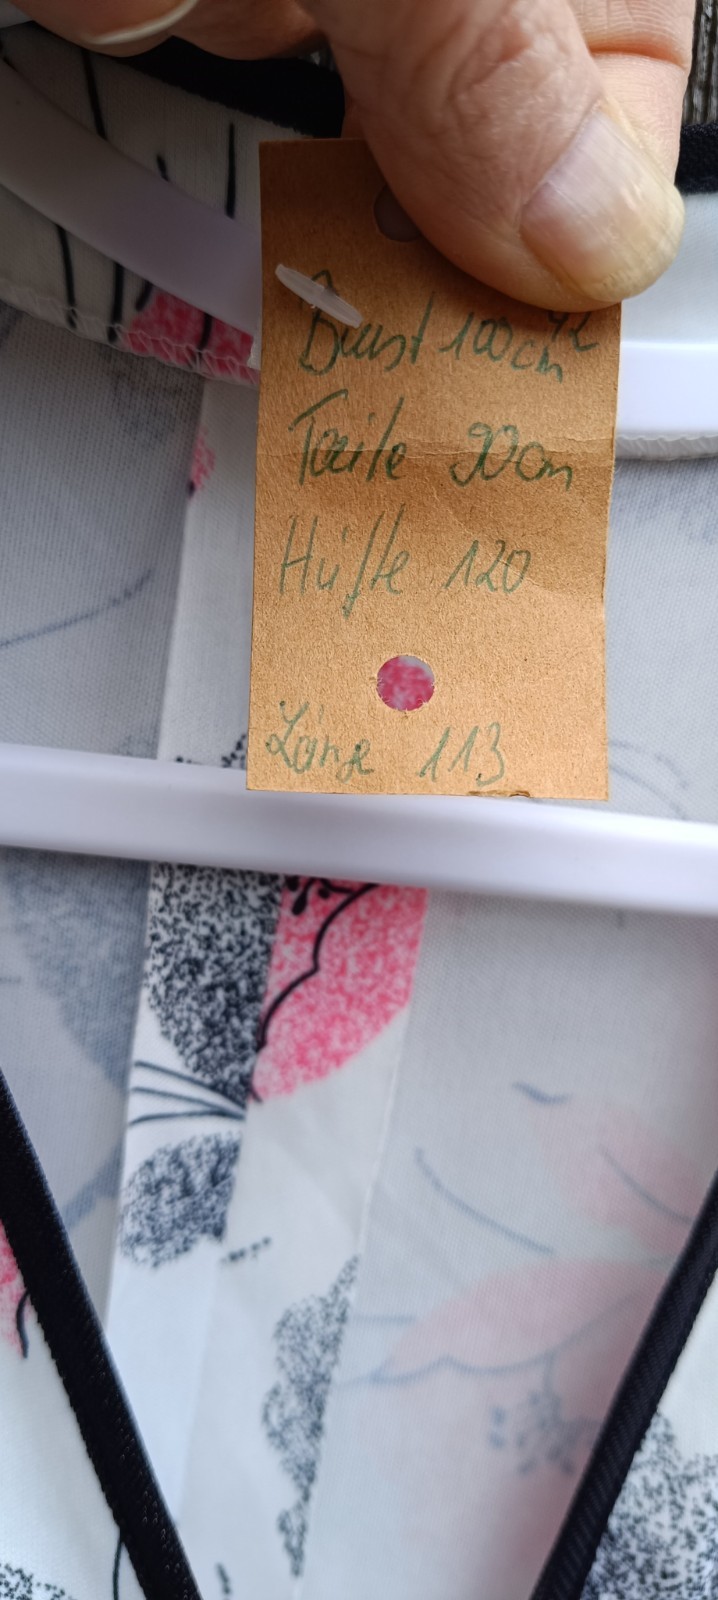 42
Brust 100cm
Taile 90cm
Hüfte 120
Länge 113